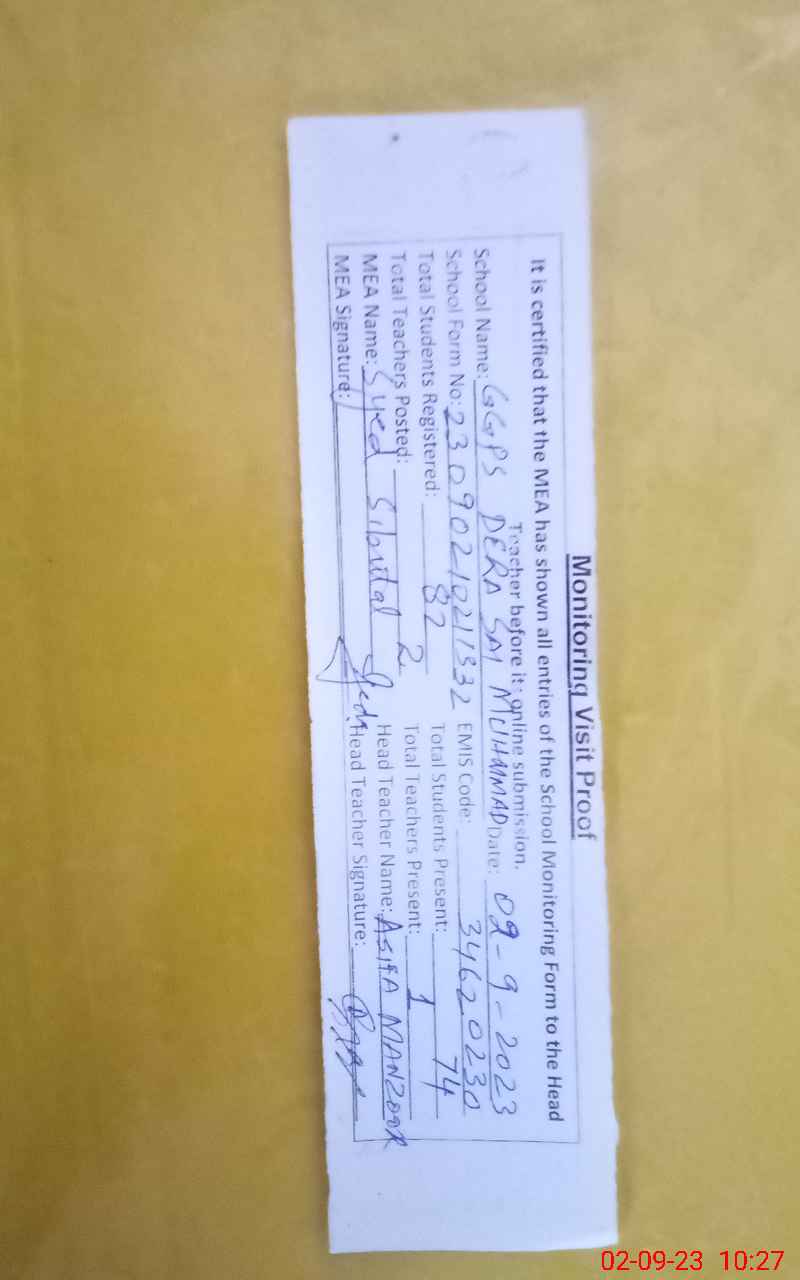 Monitoring Visit Proof
It is certified that the MEA has shown all entries of the School Monitoring Form to the Head
Teacher before its online submission.
School Name: GGPS DERA SAI MUHAMMAD Date: 02-9-2023
School Form No: 23090210211332 EMIS Code: 34620230
Total Students Registered: 87 Total Students Present: 74
Total Teachers Posted: 2 Total Teachers Present: 1
MEA Name: Syed Head Teacher Name: ASIFA MANZOOR
MEA Signature: Head Teacher Signature:
02-09-23 10:27